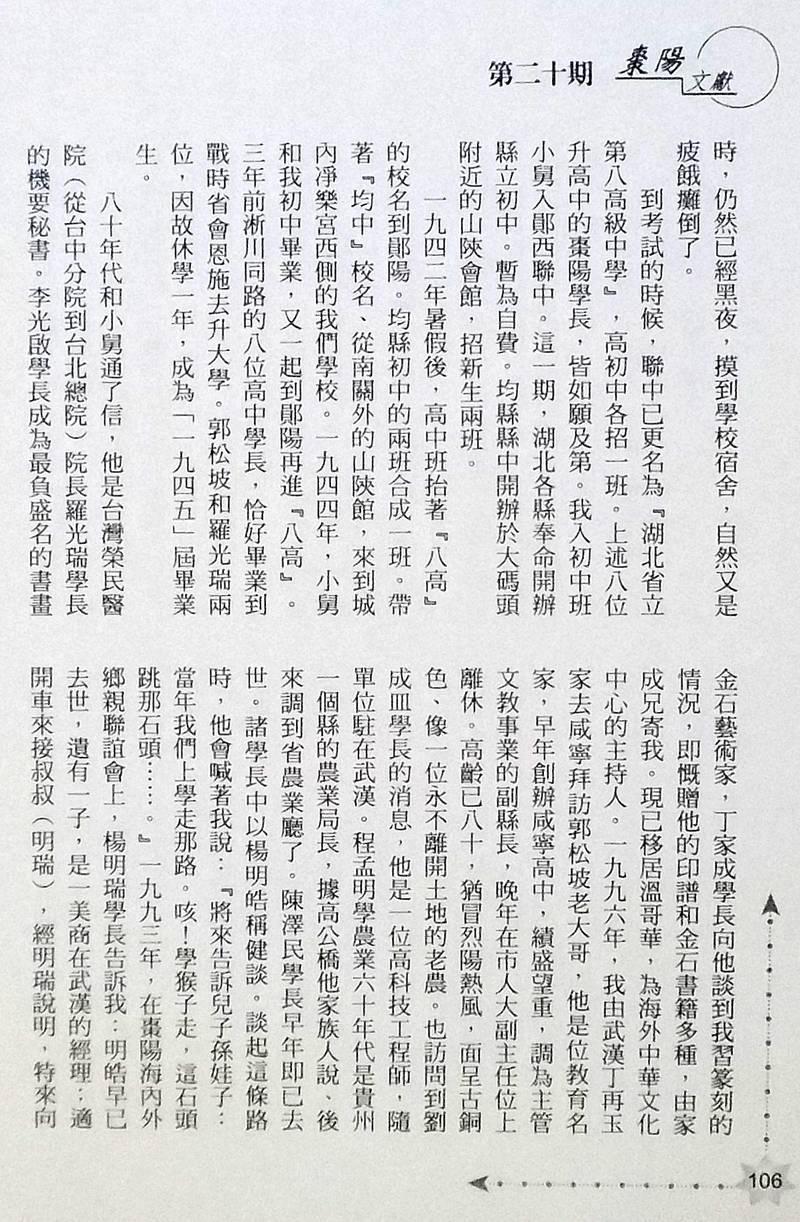 第二十期
棗陽
文獻
時，仍然已經黑夜，摸到學校宿舍，自然又是
疲餓癱倒了。
到考試的時候，聯中已更名為『湖北省立
第八高級中學』，高初中各招一班。上述八位
升高中的棗陽學長，皆如願及第。我入初中班
小舅入鄖西聯中。這一期，湖北各縣奉命開辦
縣立初中。暫為自費。均縣縣中開辦於大碼頭
附近的山陝會館，招新生兩班。
一九四二年暑假後，高中班抬著『八高』
的校名到鄖陽。均縣初中的兩班合成一班。帶
著『均中』校名、從南關外的山陝館，來到城
內淨樂宮西側的我們學校。一九四四年，小舅
和我初中畢業，又一起到鄖陽再進『八高』。
三年前淅川同路的八位高中學長，恰好畢業到
戰時省會恩施去升大學。郭松坡和羅光瑞兩
位，因故休學一年，成為「一九四五」屆畢業
生。
八十年代和小舅通了信，他是台灣榮民醫
院（從台中分院到台北總院）院長羅光瑞學長
的機要秘書。李光啟學長成為最負盛名的書畫
金石藝術家，丁家成學長向他談到我習篆刻的
情況，即慨贈他的印譜和金石書籍多種，由家
成兄寄我。現已移居溫哥華，為海外中華文化
中心的主持人。一九九六年，我由武漢丁再玉
家去咸寧拜訪郭松坡老大哥，他是位教育名
家，早年創辦咸寧高中，績盛望重，調為主管
文教事業的副縣長，晚年在市人大副主任位上
離休。高齡已八十，猶冒烈陽熱風，面呈古銅
色、像一位永不離開土地的老農。也訪問到劉
成皿學長的消息，他是一位高科技工程師，隨
單位駐在武漢。程孟明學農業六十年代是貴州
一個縣的農業局長，據高公橋他家族人說、後
來調到省農業廳了。陳澤民學長早年即已去
世。諸學長中以楊明皓稱健談。談起這條路
時，他會喊著我說：『將來告訴兒子孫娃子：
當年我們上學走那路。咳！學猴子走，這石頭
跳那石頭……。』一九九三年，在棗陽海內外
鄉親聯誼會上，楊明瑞學長告訴我：明皓早已
去世，遺有一子，是一美商在武漢的經理；適
開車來接叔叔（明瑞），經明瑞說明，特來向
106